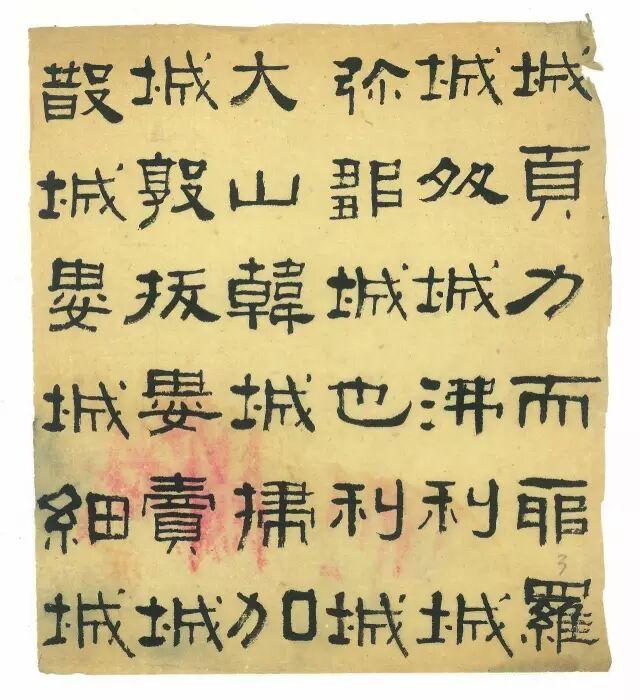 城頁力而耶羅
城奴城沸利城
弥鄒城也利城
大山韓城掃加
城敦拔婁賣城
散城婁城細城
3